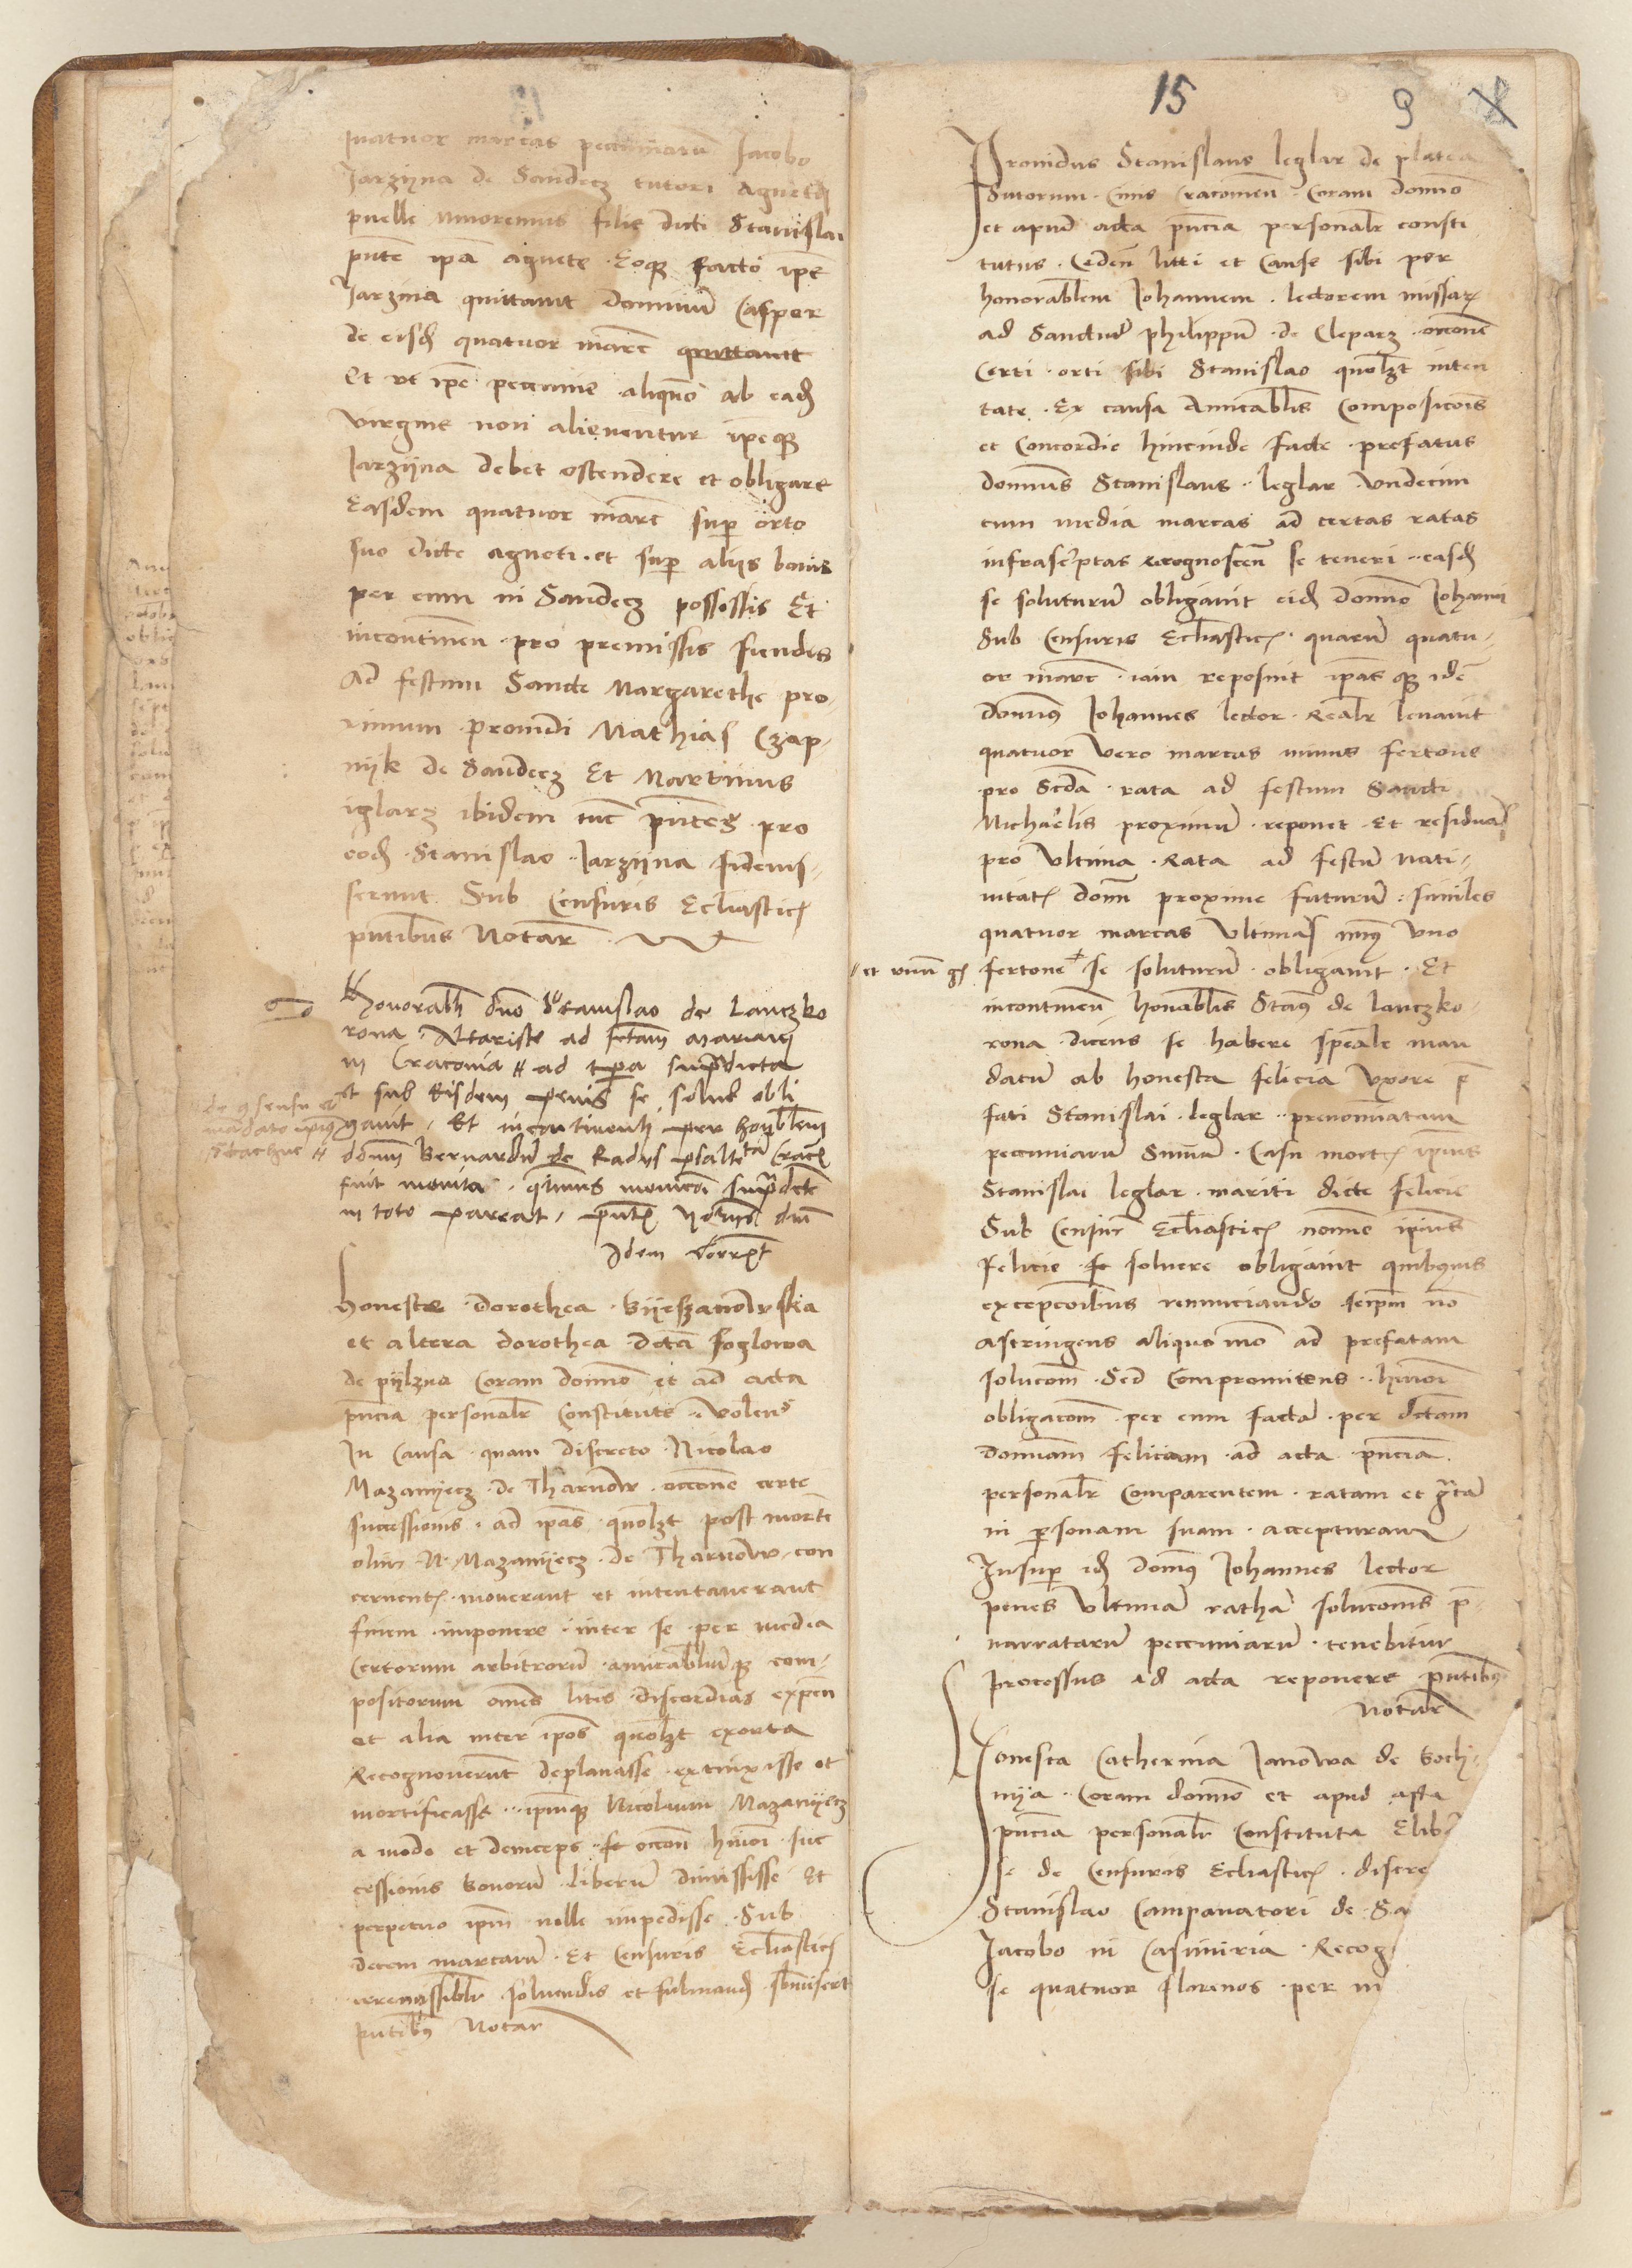 quatuor marcas pecuniarū Jacobo
Jarzyna de Sandecz tutori Agnetis
puelle minorennis filie dicti Stanislai
pn̄te ip̄a agnete Eoq₃ facto ip̄e
Jarzina quittauit dominū Casper
de eisdē quatuor marc̄ quittauit
Et ut ip̄e peccunie aliquō ab eadē
virgine non alienentur ipeq₃
Jarzyna debet ostendere et obligare
Easdem quatuor marc̄ sup̄ orto
suo dicte agneti et sup̄ aliis bonis
per eum in Sandecz possessis Et
incontinen̄ pro premissis fiendis
Ad festum Sancte Margarethe pro
ximum prouidi Mathias Czap-
nyk de Sandecz Et Martinus
iglarz ibidem tūc pn̄tes pro
eodē Stanislao Jarzyna fideius-
serunt Sub Censuris Eccl̄iasticis
pn̄tibus Notar̄
Honorabli dn̄o Stanislao de Lanczko
rona Altariste ad sctām mariam
in Cracouia ad tp̄a supradicta
et sub Eisdem penis se soluē obli
de 9sensu et
mādato ipiꝰ
Stachne
gauit Et incontinenti per honblem
dōnm Bernardū de Radijs psaltē Crac̄
fuit monita qtinus monicōi supradcte
in toto pareat pn̄te Notijs dm̄
Idem
Honeste Dorothea Byeszanowska
et altera dorothea dcta foglowa
de pylzno Coram domino et ad acta
pn̄cia personalr̄ Constitute volens
In Causa quam discreto Nicolao
Mazanyecz de Tharnow occōne certe
successionis ad ip̄as quolzt post morte
olim N Mazanyecz de Tharnow con
cernent₃ mouerant et intentauerant
finem imponere inter se per media
Certorum arbitrorū amicabiliūq₃ com-
positorum omēs lites discordias expen̄
et alia inter ipos quolzt exorta
Recognouerunt deplanasse extinxisse et
mortificasse ipmq₃ Nicolaum Mazanyecz
a modo et deinceps occōn̄ hmōi suc
cessionis bonorū liberū dimississe Et
perpetuo ipm̄ nolle impedisse Sub
decem marcarū Et Censuris Eccl̄iasticis
irremissiblr̄ soluendis et fulminand̄ sbmiserūt
pn̄tibus Notar̄
15 9
Prouidus Stanislaus leglar de platea
Sutorum Ciuis Cracouien̄ Coram domino
et apud acta pn̄cia personalr̄ consti
tutus Ceden̄ litti et Cause sibi per
honorablem Johannem lectorem missarū
ad Sanctū philippū de Cleparz occōne
Certi orti sibi Stanislao quolzt inten
tate Ex causa Amicablis Composicōis
et Concordie hincinde facte prefatus
dominus Stanislaus leglar Vndecim
cum media marcas ad certas ratas
infrascptas recognoscen̄ se teneri easdē
se soluturū obligauit eidē domino Johanni
Sub Censuris Eccl̄iasticis quarū quatu-
or marc̄ iam reposuit ipasq₃ idē
dominꝰ Johannes lector Realr̄ leuauit
quatuor vero marcas minus fertone
pro Scda rata ad festum Sancti
Michaelis proximū reponet Et residuas
pro vltima Rata ad festū nati-
uitat₃ domi proxime futurū similes
quatuor marcas vltimas minꝰ vno
et vnū gs fertone se soluturū obligauit Et
incontinen̄ honablis Stanꝰ de lanczko-
rona dicens se habere speāle man
datū ab honesta felicia vxore p̄
fati Stanislai leglar prenominatam
pecuniarū Summā Casu mortis ipius
Stanislai leglar mariti dicte felicie
Sub Censur̄ Eccl̄iasticis nomine ipius
felicie se soluere obligauit quibusuis
excepcōibus renunciando seipm nō
astringens aliquo mō ad prefatam
solucōm Sed Compromittens hmōi
obligacōm per eum factā per dctam
dominam feliciam ad acta pn̄cia
personalr̄ Comparentem ratam et grata
in psonam suam accepturam
Insup idē Domꝰ Johannes lector
penes vltimā rathā solucōnis p̄
narratarū peccuniarū tenebitur
processus ad acta reponere pn̄tibus
Notar̄
Honesta Catherina Janowa de boch-
nya Coram domino et apud acta
pn̄cia personalr̄ Constituta Elib
se de Censuris Eccl̄iasticis discre
Stanislao Campanatori de Sa
Jacobo in Casimiria Recog
se quatuor florenos per m